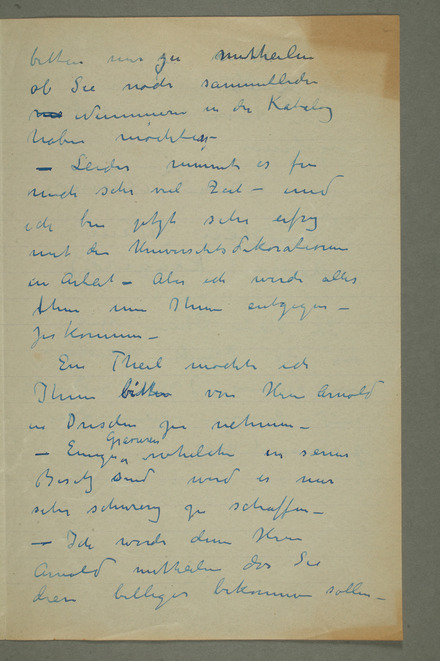 bitten mir zu mittheilen
ob Sie noch sammtliche
Nummern in die Katalog
haben möchten
– Leider nimmt es fur
mich sehr viel Zeit – und
ich bin jetzt sehr
mit die Universitets Dekorationen
in Arbeit – Aber ich werde alles
thun um Ihnen entgegen –
zu kommen –
Ein Theil mochte ich
Ihnen bitten von Herrn Arnold
in Dresden zu nehmen –
– Einige Gravuren in seiner
Besitz sind wird es mir
sehr schwierig zu schaffen –
– Ich werde dem Herrn
Arnold mittheilen das Sie
billiger bekommen sollen –